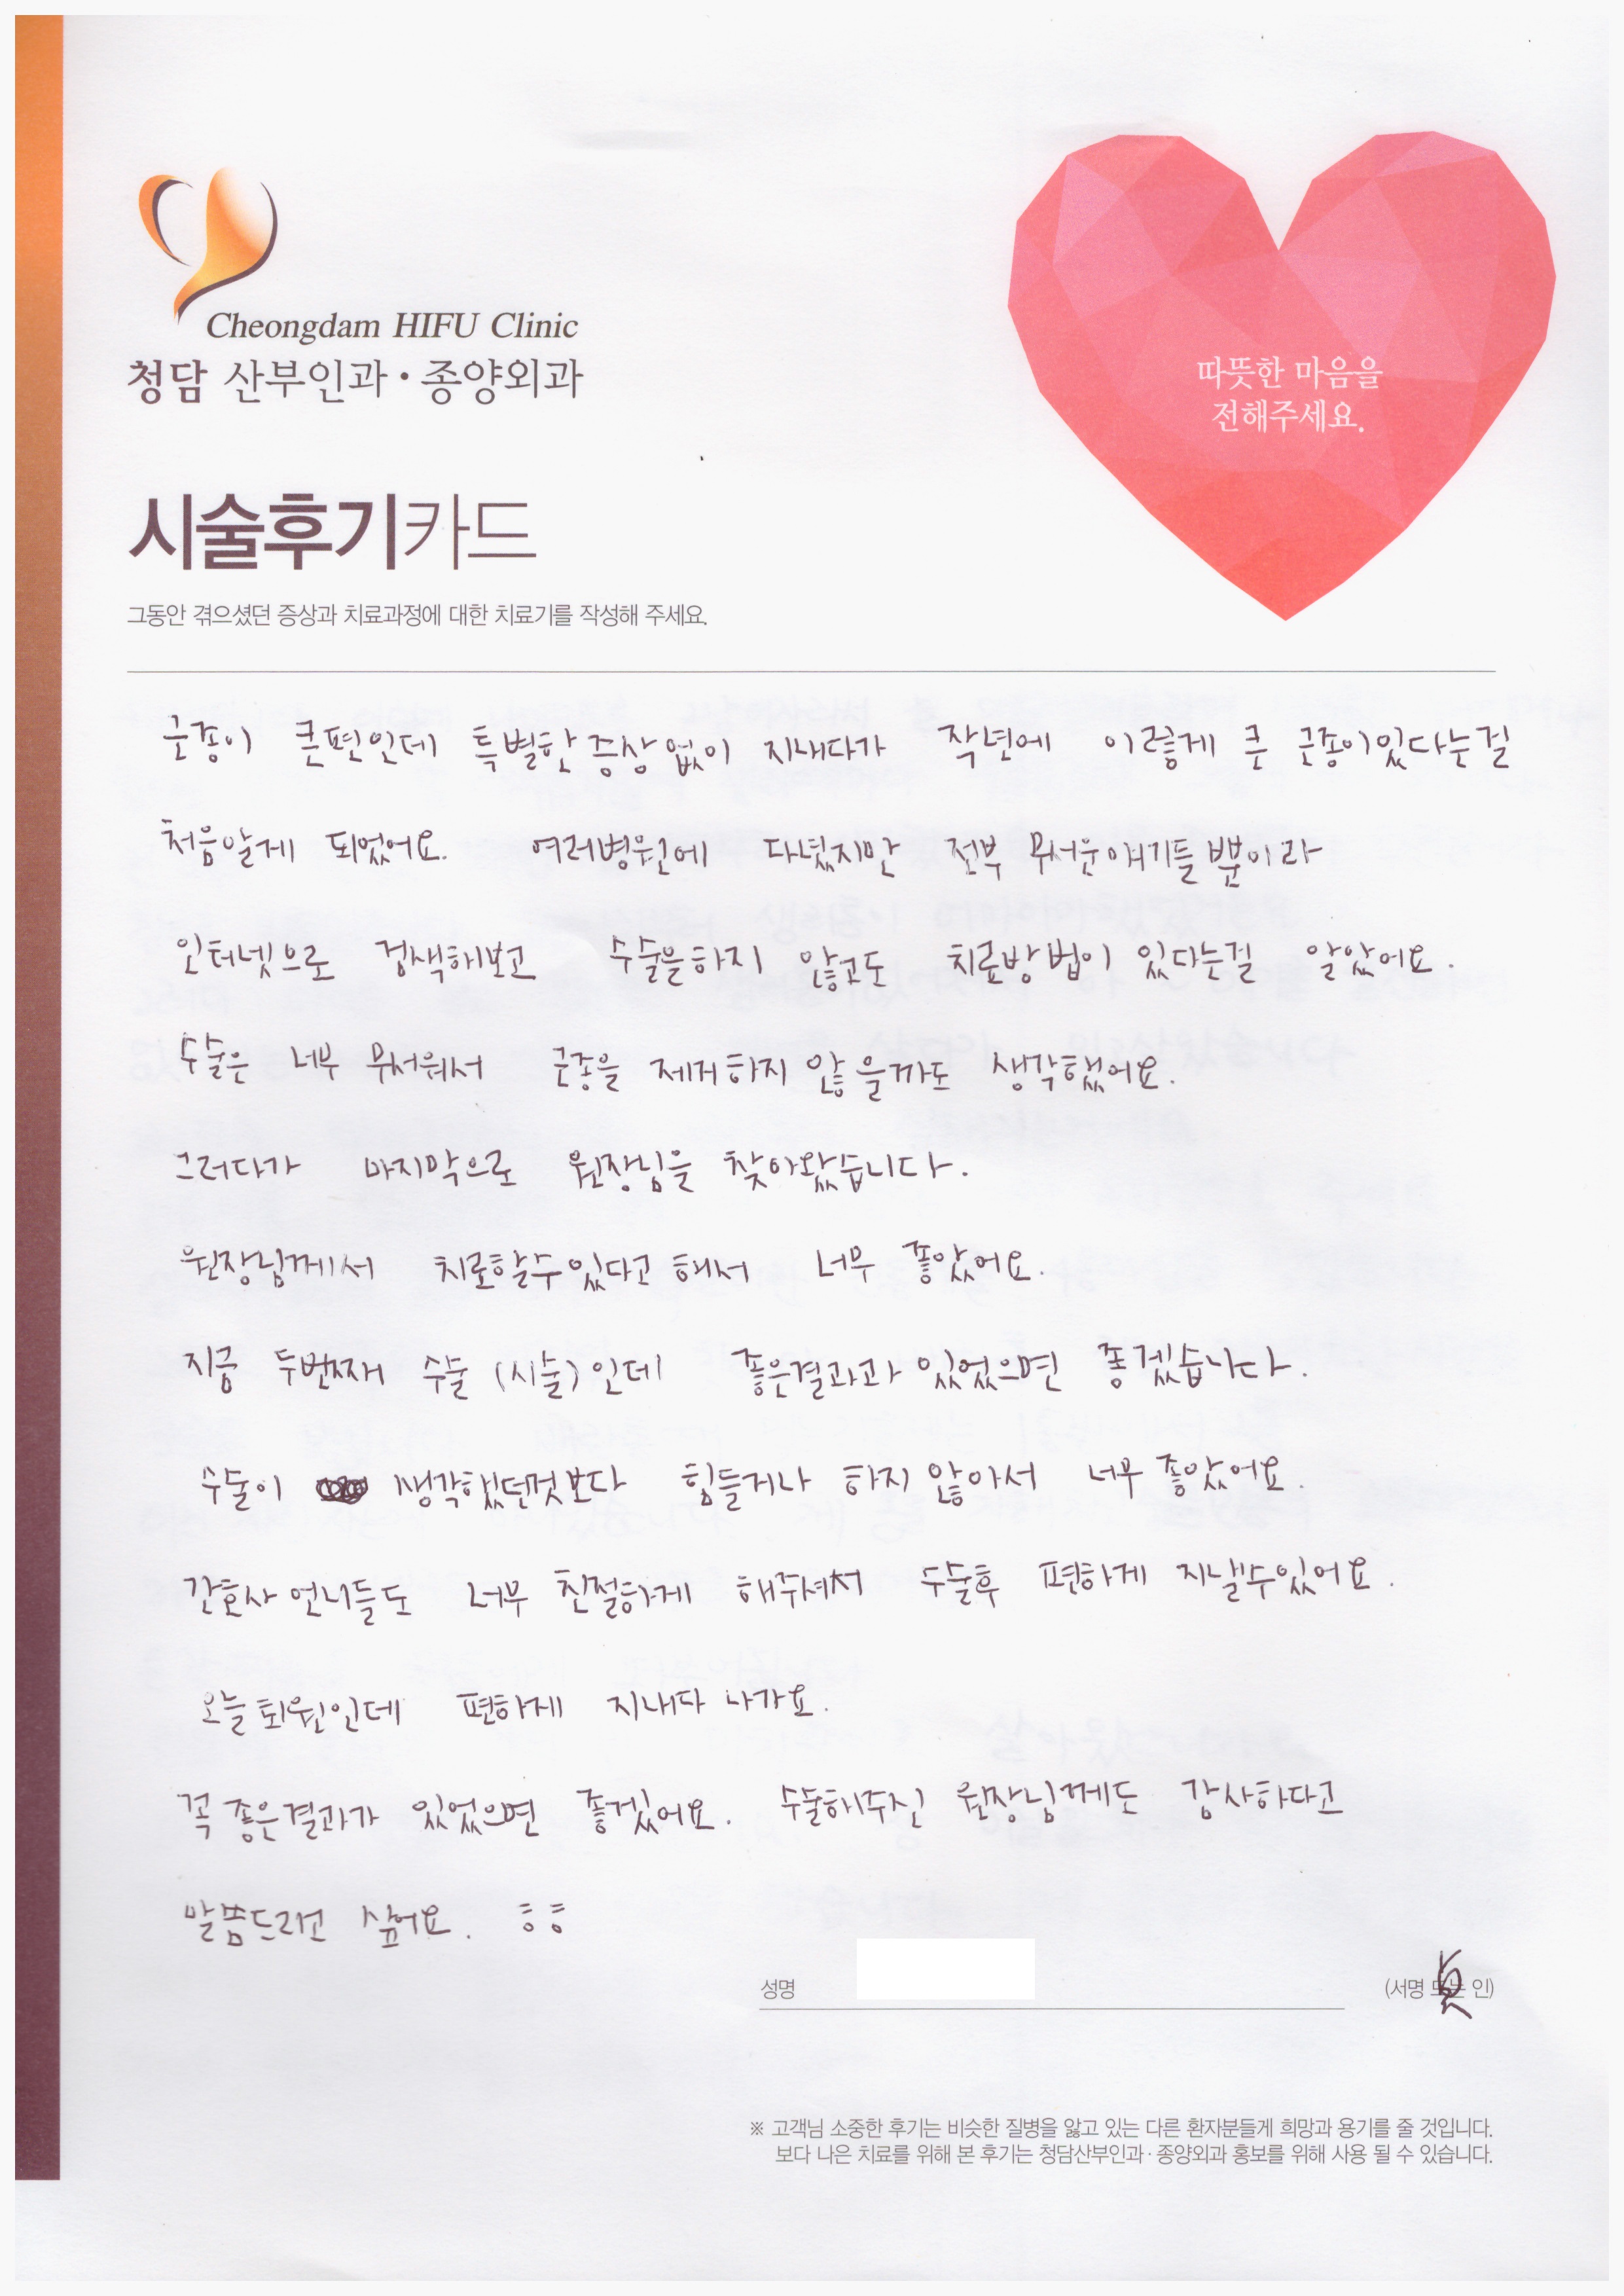 Cheongdam HIFU Clinic
청담 산부인과·종양외과
따뜻한 마음을
전해주세요.
시술후기카드
그동안 겪으셨던 증상과 치료과정에 대한 치료기를 작성해 주세요.
근종이 큰편인데 특별한 증상 없이 지내다가 작년에 이렇게 큰 근종이있다는걸
처음알게 되었어요. 여러병원에 다녔지만 전부 무서운얘기들뿐이라
인터넷으로 검색해보고 수술을하지 않고도 치료방법이 있다는걸 알았어요.
수술은 너무 무서워서 근종을 제거하지 않을까도 생각했어요.
그러다가 마지막으로 원장님을 찾아왔습니다.
원장님께서 치료할수있다고 해서 너무 좋았어요.
지금 두번째 수술 (시술)인데 좋은결과과 있었으면 좋겠습니다.
수술이 생각했던것보다 힘들거나 하지 않아서 너무 좋았어요.
간호사 언니들도 너무 친절하게 해주셔서 수술후 편하게 지낼수있어요.
오늘 퇴원인데 편하게 지내다 나가요.
꼭 좋은결과가 있었으면 좋겠어요. 수술해주신 원장님께도 감사하다고
말씀드리고 싶어요. ㅎㅎ
성명 (서명 또는 인)
※ 고객님 소중한 후기는 비슷한 질병을 앓고 있는 다른 환자분들게 희망과 용기를 줄 것입니다.
보다 나은 치료를 위해 본 후기는 청담산부인과·종양외과 홍보를 위해 사용 될 수 있습니다.